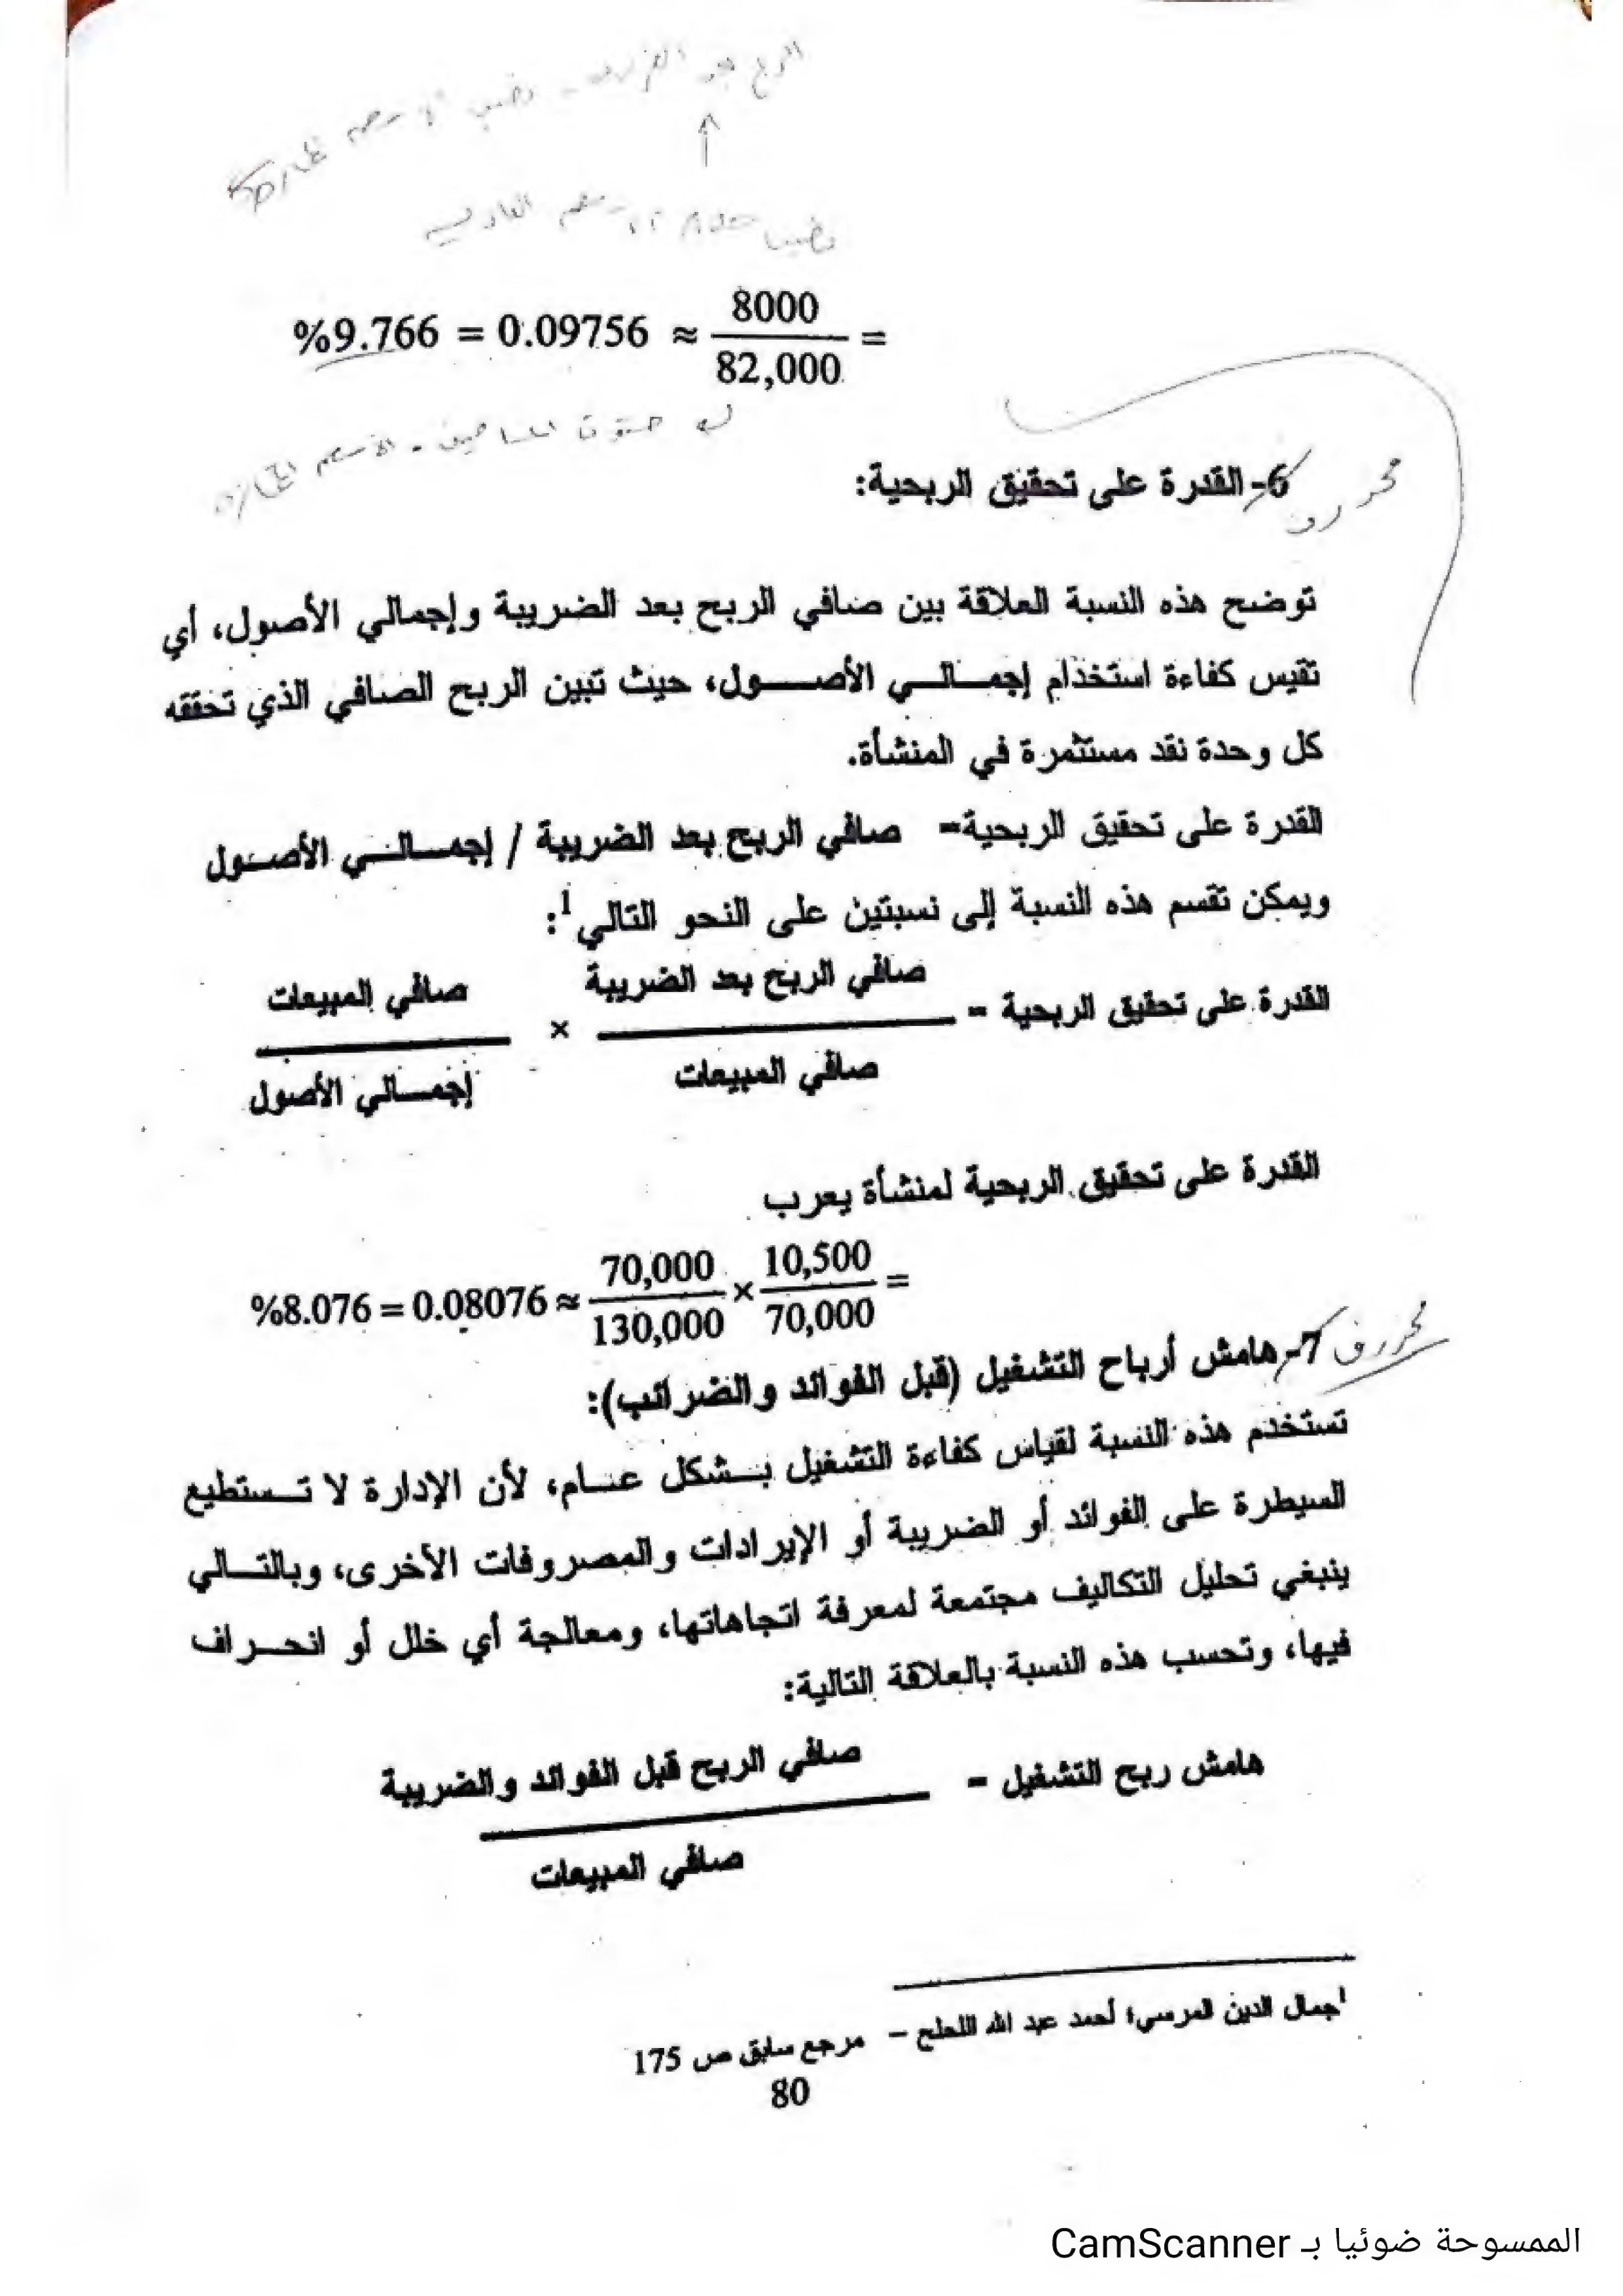 = 8000 / 82,000 ≈ 0.09756 = %9.766
محذوف
6- القدرة على تحقيق الربحية:
توضح هذه النسبة العلاقة بين صافي الربح بعد الضريبة وإجمالي الأصول، أي
تقيس كفاءة استخدام إجمالي الأصول، حيث تبين الربح الصافي الذي تحققه
كل وحدة نقد مستثمرة في المنشأة.
القدرة على تحقيق الربحية= صافي الربح بعد الضريبة / إجمالي الأصول
ويمكن تقسم هذه النسبة إلى نسبتين على النحو التالي1:
القدرة على تحقيق الربحية = صافي الربح بعد الضريبة / صافي المبيعات × صافي المبيعات / إجمالي الأصول
القدرة على تحقيق الربحية لمنشأة يعرب
= 10,500 / 70,000 × 70,000 / 130,000 ≈ 0.08076 = %8.076
محذوف
7- هامش أرباح التشغيل (قبل الفوائد والضرائب):
تستخدم هذه النسبة لقياس كفاءة التشغيل بشكل عام، لأن الإدارة لا تستطيع
السيطرة على الفوائد أو الضريبة أو الإيرادات والمصروفات الأخرى، وبالتالي
ينبغي تحليل التكاليف مجتمعة لمعرفة اتجاهاتها، ومعالجة أي خلل أو انحراف
فيها، وتحسب هذه النسبة بالعلاقة التالية:
هامش ربح التشغيل = صافي الربح قبل الفوائد والضريبة / صافي المبيعات
1جمال الدين المرسي؛ أحمد عبد الله اللحلح – مرجع سابق ص 175
80
الممسوحة ضوئيا بـ CamScanner